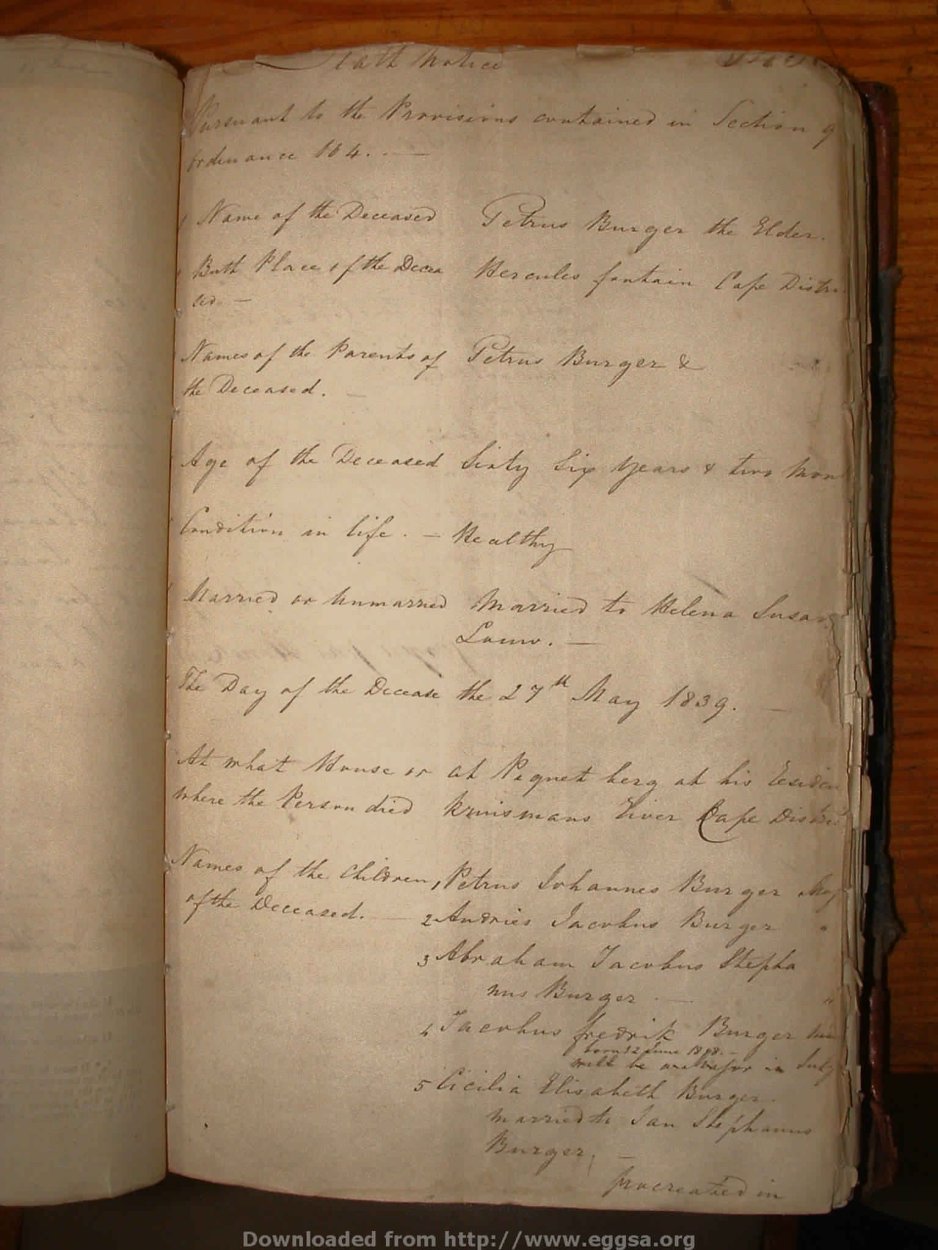 Death Notice
Pursuant to the Provisions contained in Section 9
Ordinance 104. —
Name of the Deceased Petrus Burger the Elder.
Birth Place of the Decea Hercules fontain Cape Distri
sed —
Names of the Parents of Petrus Burger &
the Deceased. —
Age of the Deceased Sixty Six Years & two Mon
Condition in life. — Healthy
Married or Unmarried Married to Helena Susan
Louw. —
The Day of the Decease the 27th May 1839. —
At what House or at Piquet berg at his Residen
where the Person died Kruismans River Cape District
Names of the Children 1 Petrus Johannes Burger Maj
of the Deceased. — 2 Andries Jacobus Burger "
3 Abraham Jacobus Stepha
nus Burger — "
4 Jacobus fredrik Burger
born 12 June
will be major in July
5 Cicilia Elisabeth Burger.
married to Jan Stephanus
Burger, —
procreated in
Downloaded from http://www.eggsa.org